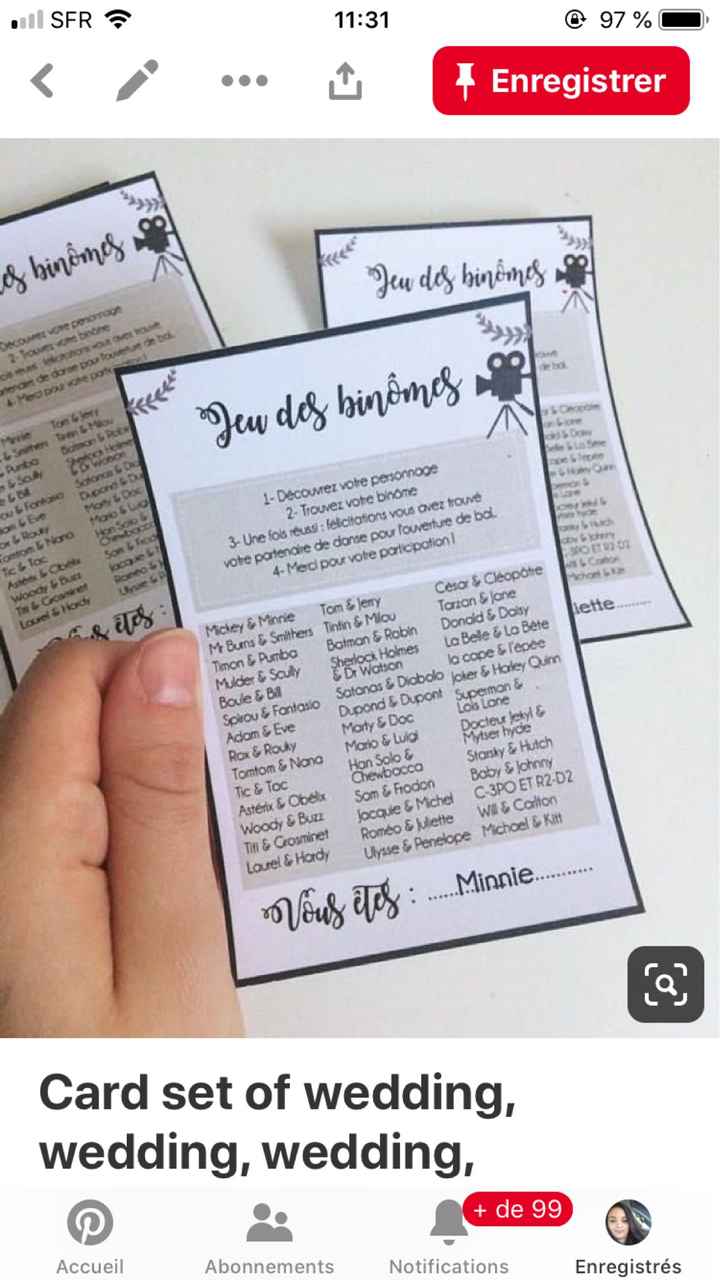 SFR
11:31
97 %
Enregistrer
es binômes
Découvrez votre personnage
2. Trouvez votre binôme
4- Merci pour votre
Tom & Jerry
Tintin & Milou
Vous êtes :
Jeu des binômes
de bal.
liette.........
Jeu des binômes
1- Découvrez votre personnage
2- Trouvez votre binôme
3- Une fois réussi : félicitations vous avez trouvé
votre partenaire de danse pour l'ouverture de bal.
4- Merci pour votre participation !
Mickey & Minnie
Mr Burns & Smithers
Timon & Pumba
Mulder & Scully
Boule & Bill
Spirou & Fantasio
Adam & Eve
Rox & Rouky
Tomtom & Nana
Tic & Tac
Astérix & Obélix
Woody & Buzz
Titi & Grosminet
Laurel & Hardy
Tom & Jerry
Tintin & Milou
Batman & Robin
Sherlock Holmes
& Dr Watson
Satanas & Diabolo
Dupond & Dupont
Marty & Doc
Mario & Luigi
Han Solo &
Chewbacca
Sam & Frodon
Jacquie & Michel
Roméo & Juliette
Ulysse & Penelope
César & Cléopâtre
Tarzan & Jane
Donald & Daisy
La Belle & La Bête
la cape & l'épée
Joker & Harley Quinn
Superman &
Lois Lane
Docteur Jekyl &
Mytser hyde
Starsky & Hutch
Baby & Johnny
C-3PO ET R2-D2
Will & Carlton
Michael & Kitt
Vous êtes : ......Minnie...........
Card set of wedding,
wedding, wedding,
+ de 99
Accueil
Abonnements
Notifications
Enregistrés